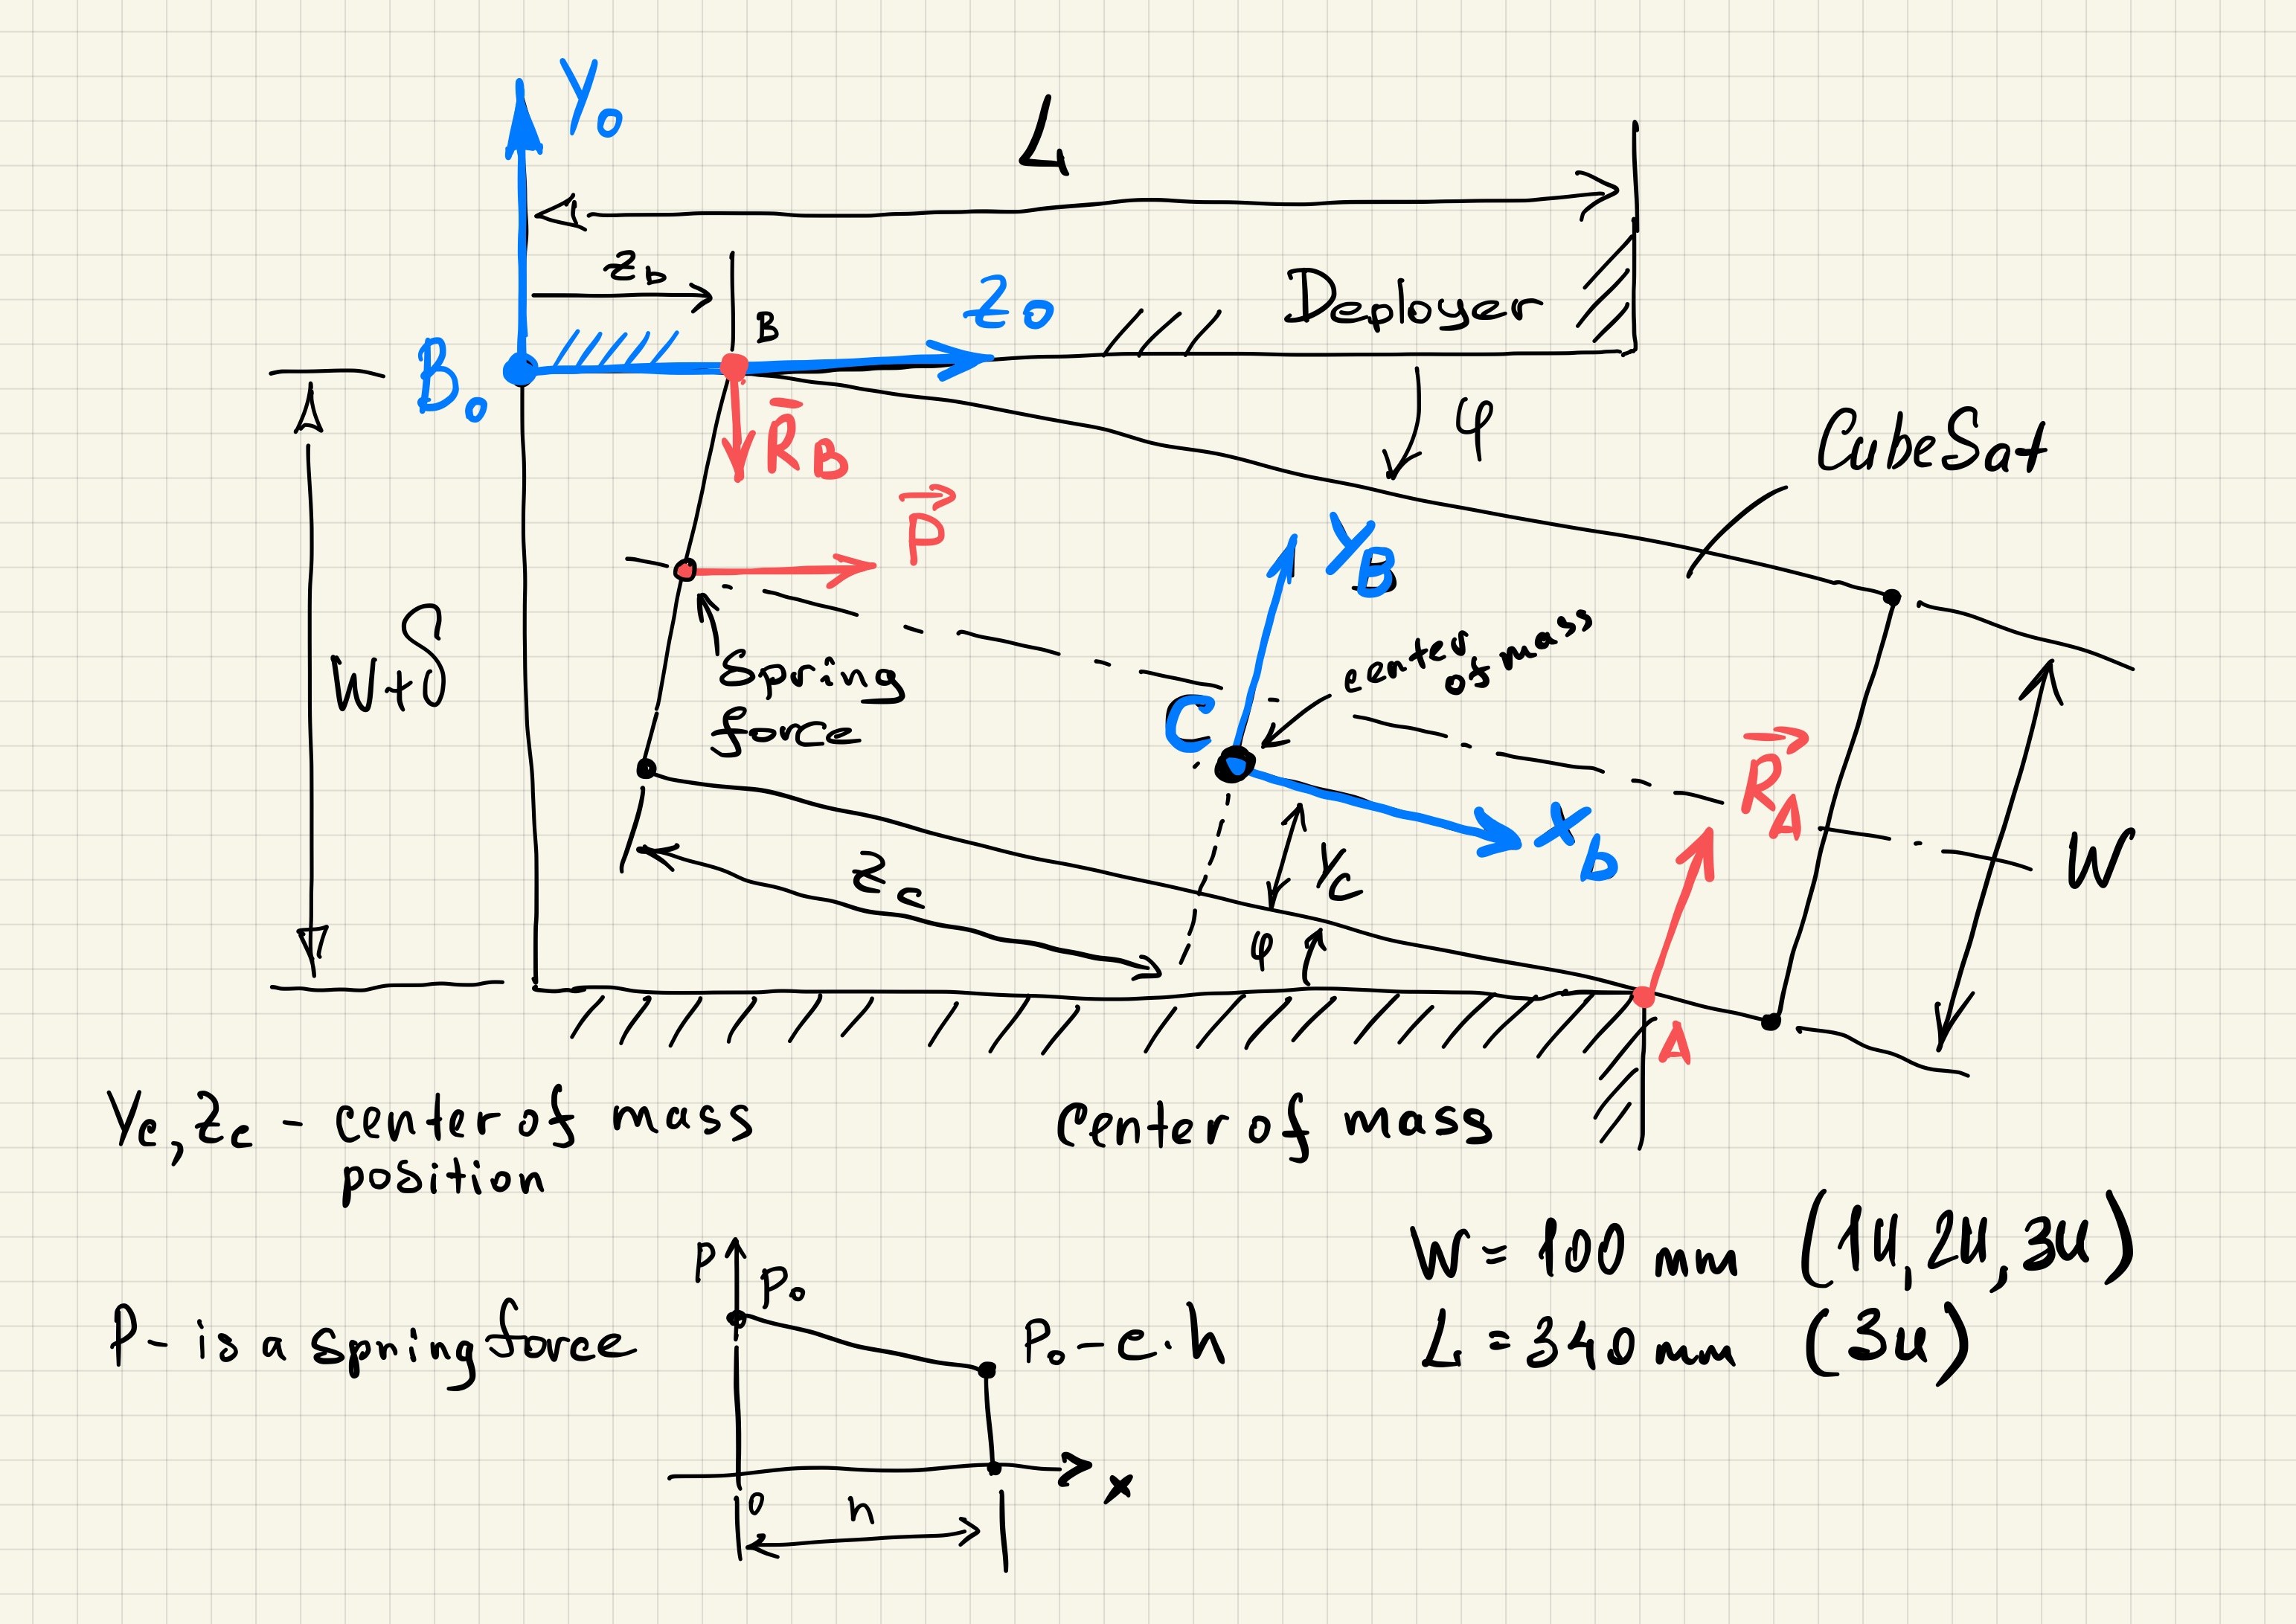 Y₀
L
z_b
B
Z₀
Deployer
B₀
R̄_B
φ
CubeSat
P⃗
Y_B
W+δ
Spring
force
center
of mass
C
R⃗_A
X_b
W
Z_c
Y_c
φ
A
Y_c, Z_c - center of mass
position
Center of mass
P
P₀
P - is a spring force
P₀ - c · h
W = 100 mm (1U, 2U, 3U)
L = 340 mm (3U)
0
h
x